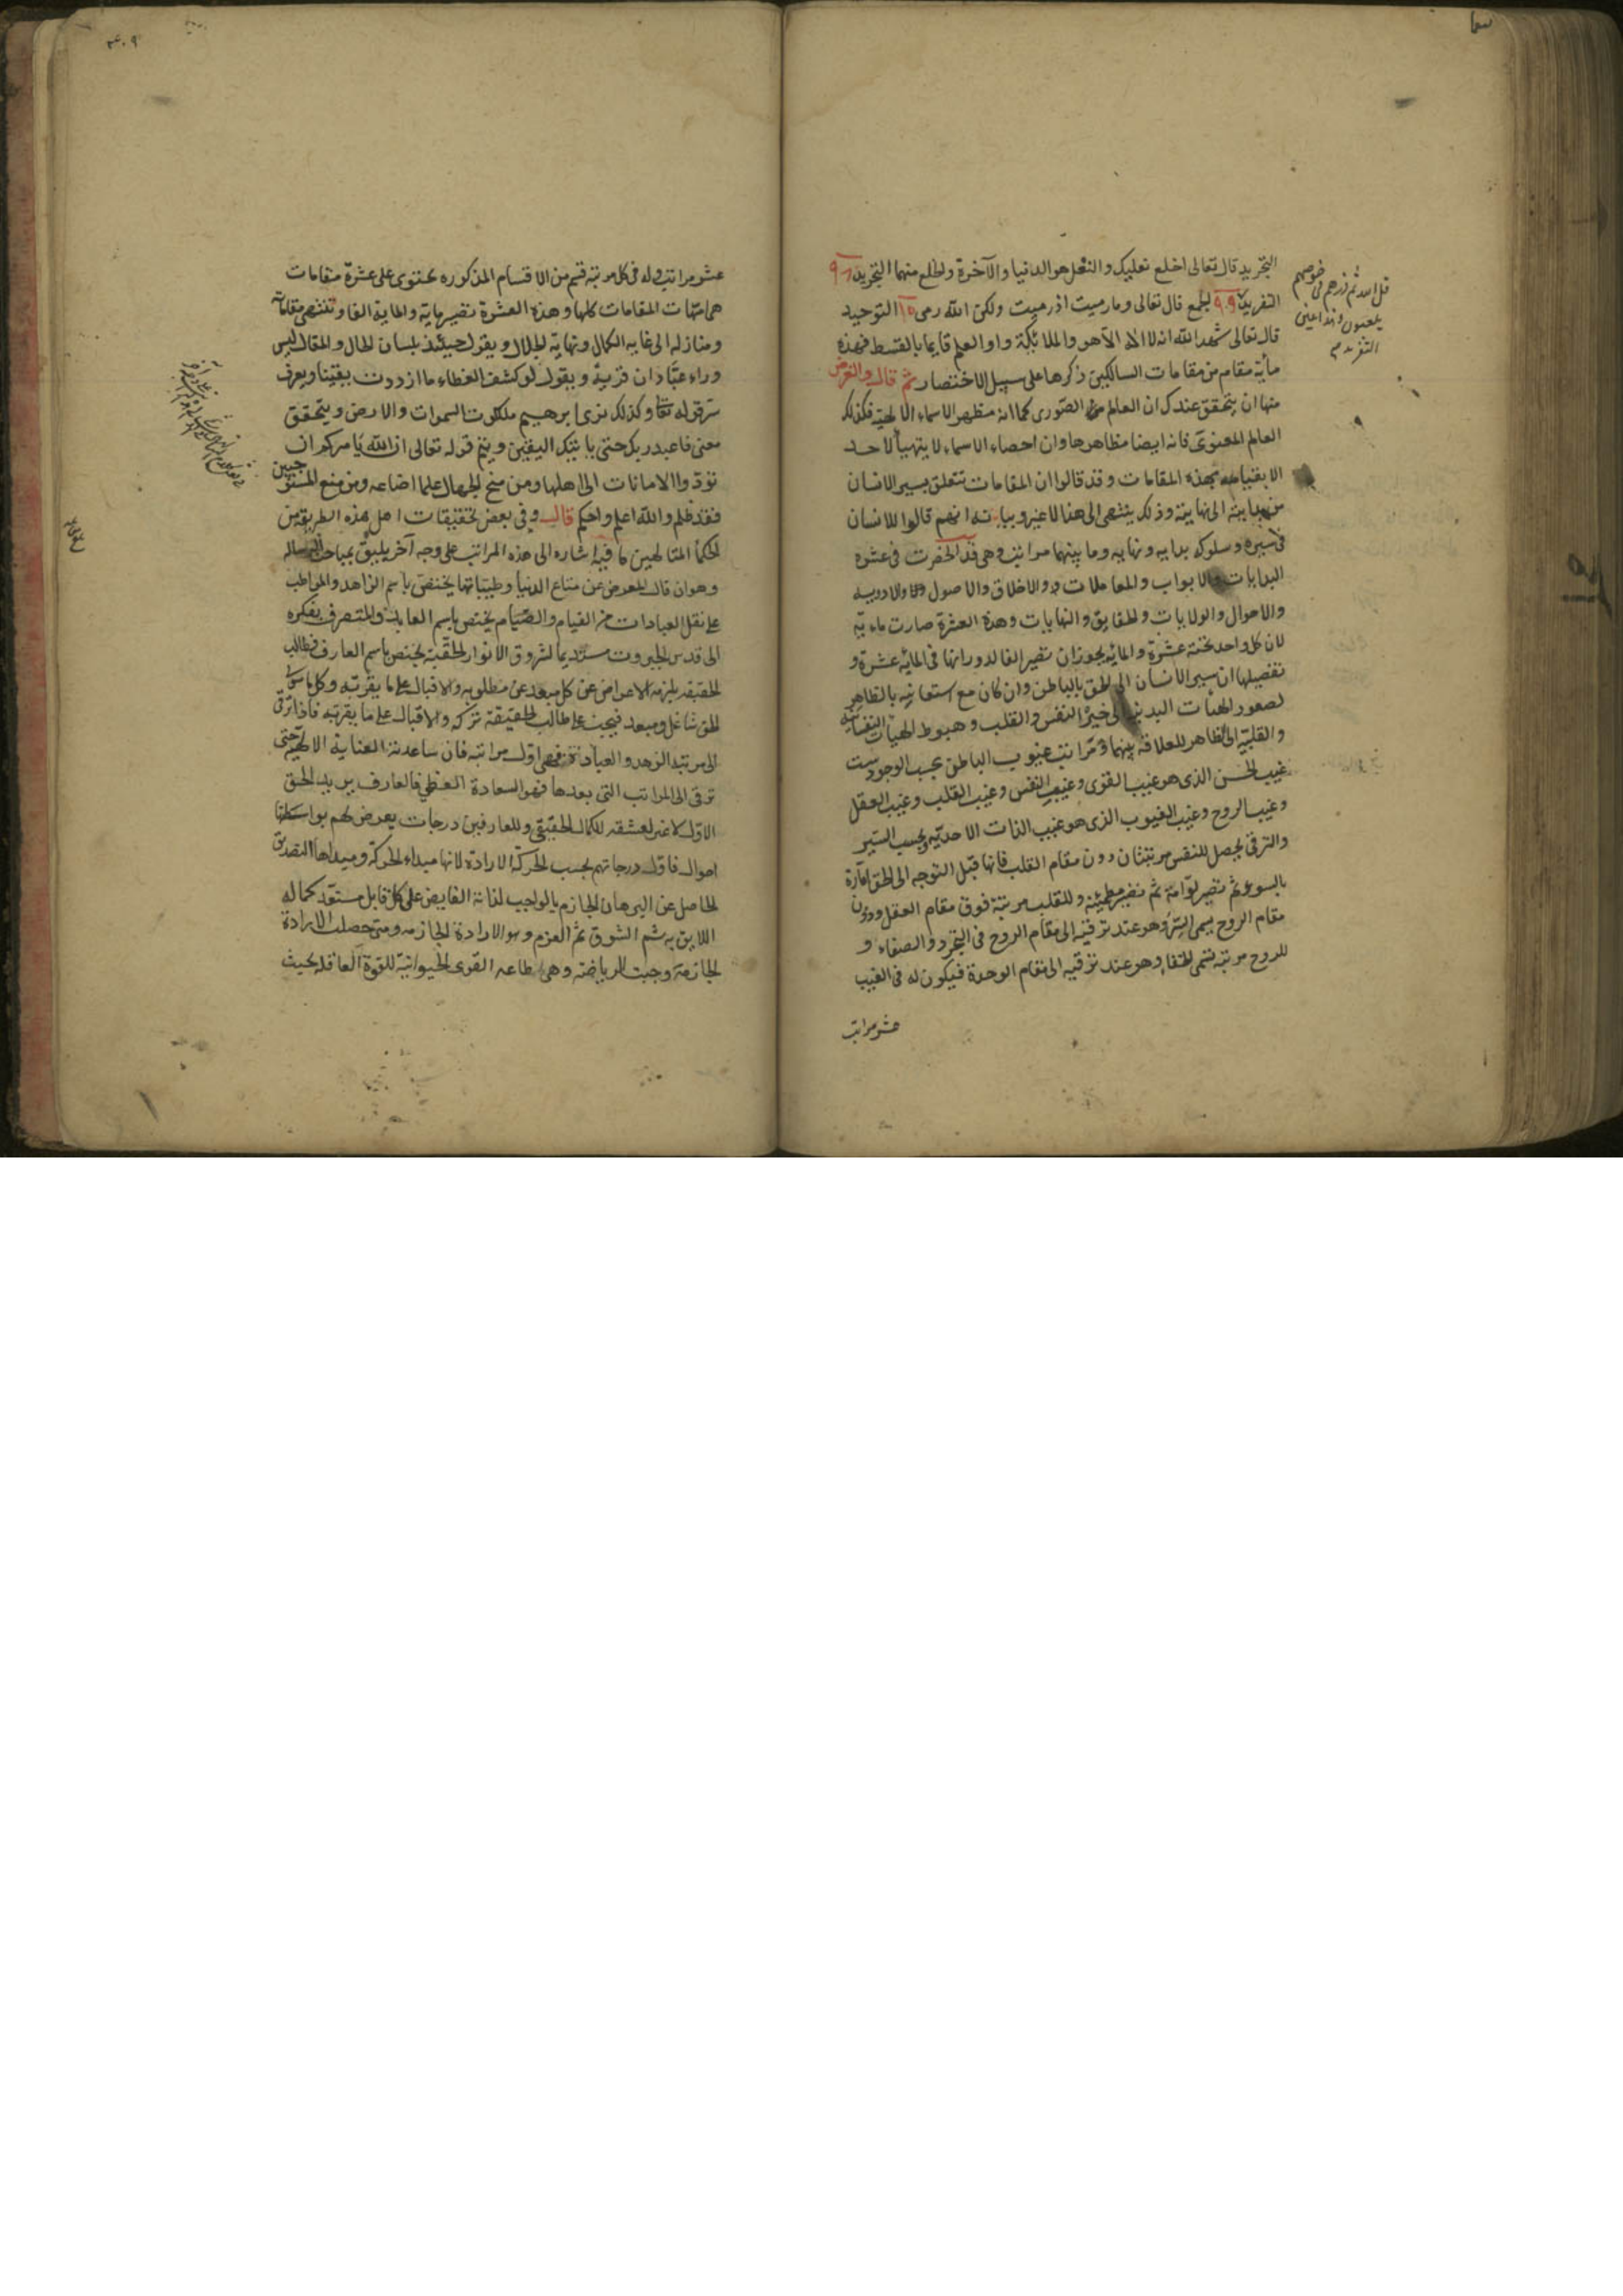 التجريد قال تعالى اخلع نعليك والنعل هو الدنيا والآخرة والخلع منهما التجريد ٩٨
التفريد ٩٩ الجمع قال تعالى وما رميت اذ رميت ولكن الله رمى التوحيد
قال تعالى شهد الله انه لا اله الا هو والملائكة واولو العلم قايما بالقسط فهذه
مأية مقام من مقامات السالكين ذكرها على سبيل الاختصار ثم قال والغرض
منها ان يتحقق عندك ان العالم الصورى كما انه مظهر الاسماء الالهية فكذلك
العالم المعنوى فانه ايضا مظاهرها وان احصاء الاسماء لا يتهيأ لاحد
الا بقيامه بهذه المقامات وقد قالوا ان المقامات تتعلق بسير الانسان
من بدايته الى نهايته وذلك ينتهى الى هنا لا غير وبيانه انهم قالوا للانسان
فى سيره وسلوكه بدايه ونهايه وما بينهما مراتب وهى قد انحصرت فى عشرة
البدايات والابواب والمعاملات والاخلاق والاصول والاودية
والاحوال والولايات والحقايق والنهايات وهذه العشرة صارت مايه
لان كل واحد تحته عشرة والمايه يجوز ان تصير الفا لدورانها فى المايه عشرة و
تفصيلها ان سير الانسان الى الحق بالباطن وان كان مع استعانته بالظاهر
لصعود الهيأت البدنية الى حيز النفس والقلب وهبوط الهيآت النفسانية
والقلبية الى الظاهر للعلاقة بينهما ومراتب غيوب الباطن بحسب الوجود ست
غيب الحس الذى هو غيب القوى وغيب النفس وغيب القلب وغيب العقل
وغيب الروح وغيب الغيوب الذى هو غيب الذات الاحدية وبحسب السير
والترقى يحصل للنفس مرتبتان دون مقام القلب فانها قبل التوجه الى الحق امارة
بالسوء ثم تصير لوامة ثم تصير مطمئنة وللقلب مرتبة فوق مقام العقل ودون
مقام الروح يسمى السر وهو عند ترقيه الى مقام الروح فى التجرد والصفاء و
للروح مرتبة تسمى الخفا وهو عند ترقيه الى مقام الوحدة فيكون له فى الغيب
عشر مراتب
قل الله ثم ذرهم فى خوضهم
يلعبون
عشر مراتب وله فى كل مرتبة قسم من الاقسام المذكوره تحتوى على عشرة مقامات
هى امهات المقامات كلها وهذه العشرة تصير ماية والماية الفا وتنتهى مقاماته
ومنازله الى غايه الكمال ونهاية الجلال ويقول حينئذ بلسان الحال والمقال ليس
وراء عبادان قرية ويقول لو كشف الغطاء ما ازددت يقينا ويعرف
سر قوله تعا وكذلك نرى ابرهيم ملكوت السموات والارض ويتحقق
معنى فاعبد ربك حتى ياتيك اليقين ويتم قوله تعالى ان الله يامركم ان
تؤدوا الامانات الى اهلها ومن منح الجهال علما اضاعه ومن منع المستوجبين
فقد ظلم والله اعلم واحكم قال وفى بعض تحقيقات اهل هذه الطريقة من
الحكمأ المتالهين ما فيه اشاره الى هذه المراتب على وجه آخر يليق بمباحث الرساله
وهو ان قال المعرض عن متاع الدنيا وطيباتها يختص باسم الزاهد والمواظب
على نقل العبادات من القيام والصيام يختص باسم العابد والمتصرف بفكره
الى قدس الجبروت مستديما لشروق الانوار الحقية يختص باسم العارف فطالب
الحقيقه يلزمه الاعراض عن كل مبعد عن مطلوبه والاقبال على ما يقربه وكل ما سوى
الحق شاغل ومبعد فيجب على طالب الحقيقة تركه والاقبال على ما يقربه فاذا ترقى
الى مرتبة الزهد والعبادة فهى اول مراتبه فان ساعدته العناية الالهية حتى
ترقى الى المراتب التى بعدها فهو السعادة العظمى فالعارف يريد الحق
الاول لا غير لعشقه للكمال الحقيقى وللعارفين درجات يعرض لهم بواسطتها
احوال فاول درجاتهم بحسب الحركة الارادة لانها مبداء الحركة ومبداها التصديق
الحاصل عن البرهان الجازم بالواجب لذاته الفايض على كل قابل مستعد كماله
اللايق به ثم الشوق ثم العزم وهو الارادة الجازمه ومتى حصلت الارادة
الجازمة وجبت الرياضة وهى اطاعه القوى الحيوانية للقوة العاقله بحيث